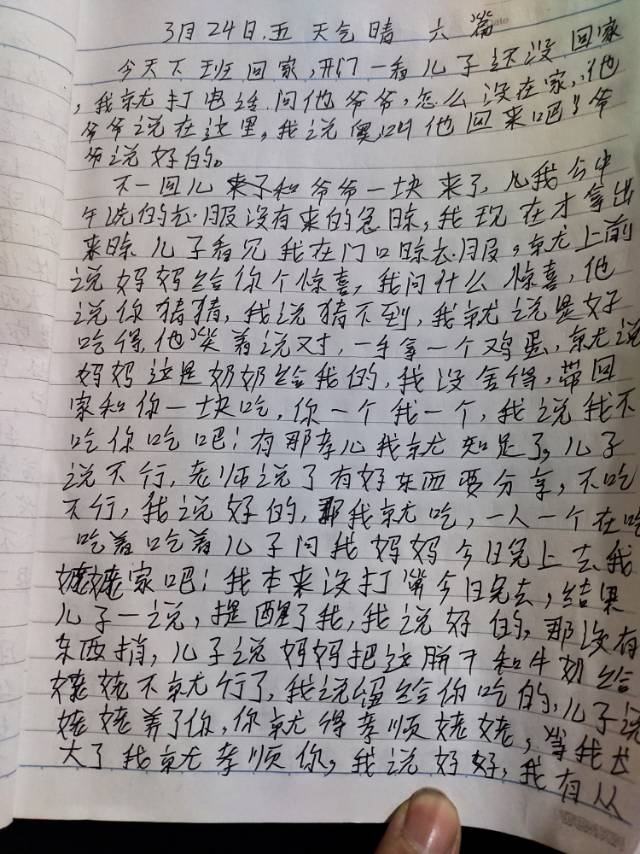 3月24日.五 天气晴 六篇
今天下班回家,开门一看儿子还没回家
,我就打电话问他爷爷,怎么没在家,他
爷爷说在这里,我说奥叫他回来吧!爷
爷说好的。
不一回儿来子和爷爷一块来了,儿我今中
午洗的衣服没有来的急晾,我现在才拿出
来晾 儿子看见我在门口晾衣服,就上前
说妈妈给你个惊喜,我问什么惊喜,他
说你猜猜,我说猜不到,我就说是好
吃得,他笑着说对,一手拿一个鸡蛋,就说
妈妈这是奶奶给我的,我没舍得,带回
家和你一块吃,你一个我一个,我说我不
吃你吃吧!有那孝心我就知足了,儿子
说不行,老师说了有好东西要分享,不吃
不行,我说好的,那我就吃,一人一个在吃
吃着吃着儿子问我妈妈今日完上去我
姥姥家吧!我本来没打算今日完去,结果
儿子一说,提醒了我,我说好的,那没有
东西捎,儿子说妈妈把这饼干和牛奶给
姥姥不就行了,我说留给你吃的,儿子说
姥姥养了你,你就得孝顺姥姥,等我长
大了我就孝顺你,我说好好,我有从